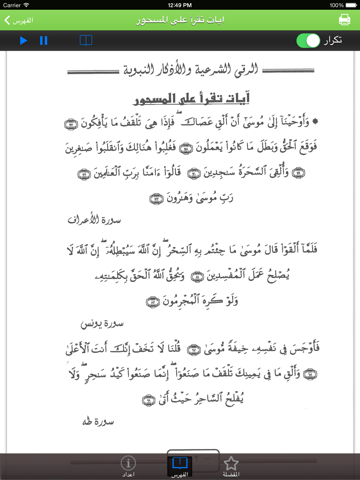 Carrier 12:49 PM 100%
الفهرس آيات تقرأ على المسحور
تكرار
الرقى الشرعية والأذكار النبوية
آيات تقرأ على المسحور
• وَأَوْحَيْنَا إِلَىٰ مُوسَىٰ أَنْ أَلْقِ عَصَاكَ ۖ فَإِذَا هِيَ تَلْقَفُ مَا يَأْفِكُونَ
فَوَقَعَ الْحَقُّ وَبَطَلَ مَا كَانُوا يَعْمَلُونَ فَغُلِبُوا هُنَالِكَ وَانقَلَبُوا صَٰغِرِينَ
وَأُلْقِيَ السَّحَرَةُ سَٰجِدِينَ قَالُوٓا ءَامَنَّا بِرَبِّ الْعَٰلَمِينَ
رَبِّ مُوسَىٰ وَهَٰرُونَ
سورة الأعراف
فَلَمَّآ أَلْقَوْا قَالَ مُوسَىٰ مَا جِئْتُم بِهِ السِّحْرُ ۖ إِنَّ اللَّهَ سَيُبْطِلُهُۥٓ ۖ إِنَّ اللَّهَ لَا
يُصْلِحُ عَمَلَ الْمُفْسِدِينَ وَيُحِقُّ اللَّهُ الْحَقَّ بِكَلِمَٰتِهِۦ
وَلَوْ كَرِهَ الْمُجْرِمُونَ
سورة يونس
فَأَوْجَسَ فِي نَفْسِهِۦ خِيفَةً مُّوسَىٰ قُلْنَا لَا تَخَفْ إِنَّكَ أَنتَ الْأَعْلَىٰ
وَأَلْقِ مَا فِي يَمِينِكَ تَلْقَفْ مَا صَنَعُوٓا ۖ إِنَّمَا صَنَعُوا كَيْدُ سَٰحِرٍ ۖ وَلَا
يُفْلِحُ السَّاحِرُ حَيْثُ أَتَىٰ
سورة طه
المفضلة الفهرس اعداد